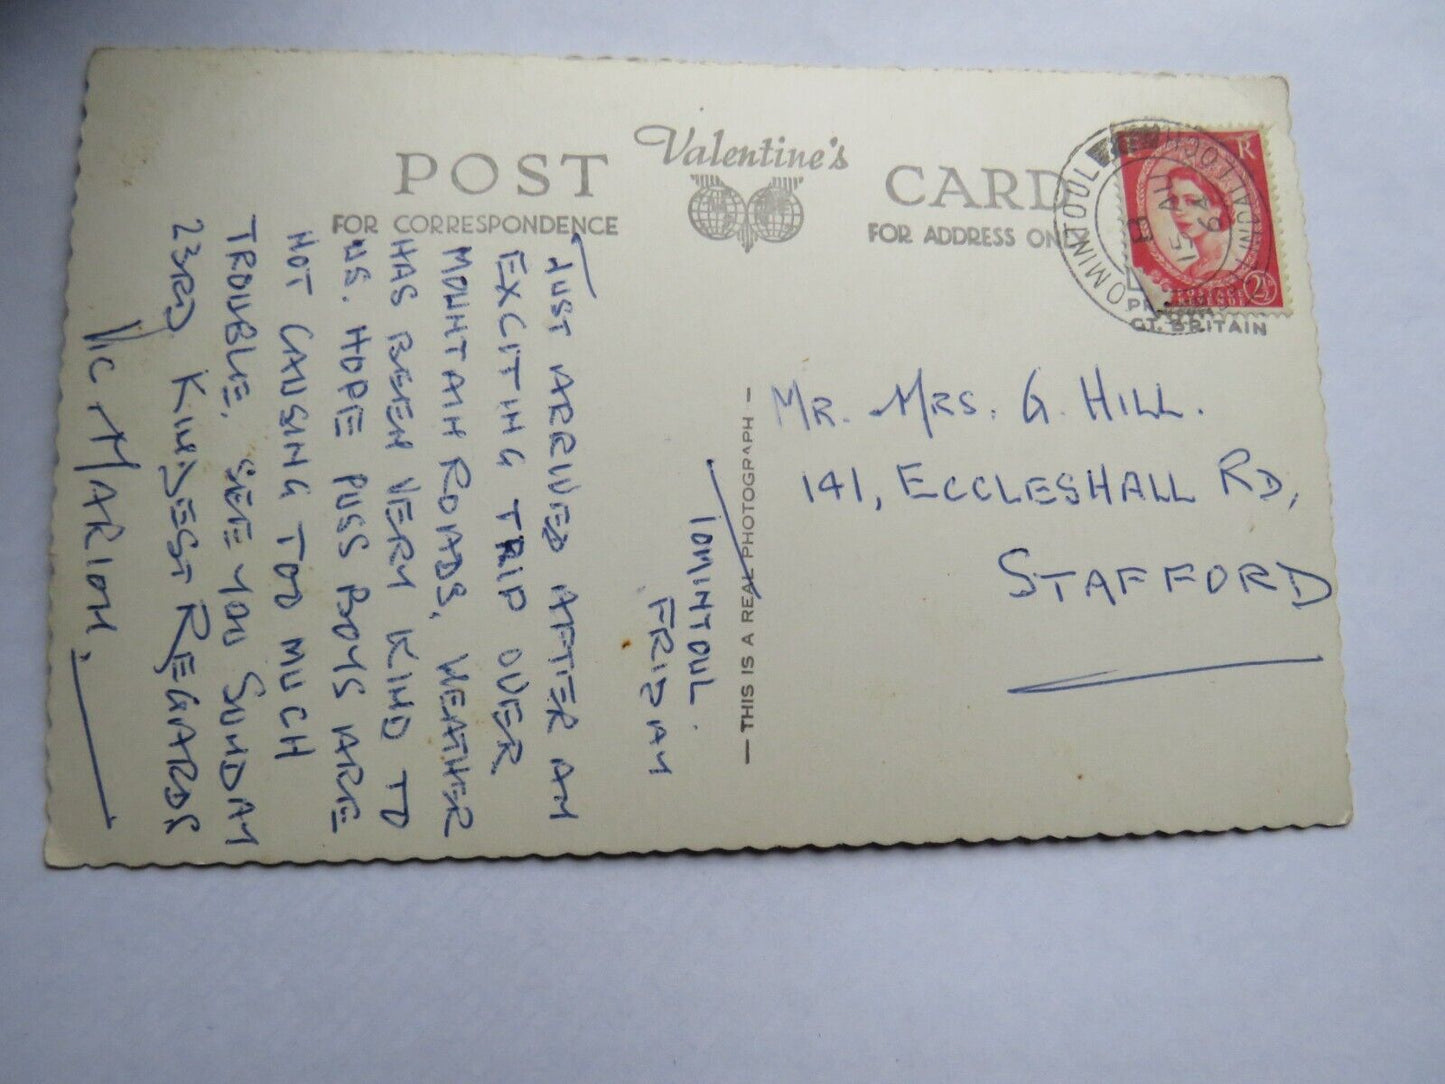 POST
Valentine's
CARD
FOR CORRESPONDENCE
FOR ADDRESS ONLY
TOMINTOUL
R
15 AU
2½
GT. BRITAIN
TOMINTOUL.
FRIDAY
JUST ARRIVED AFTER AN
EXCITING TRIP OVER
MOUNTAIN ROADS, WEATHER
HAS BEEN VERY KIND TO
US. HOPE PUSS BOYS ARE
NOT CAUSING TOO MUCH
TROUBLE, SEE YOU SUNDAY
23RD. KINDEST REGARDS
VIC + MARION.
— THIS IS A REAL PHOTOGRAPH —
MR. + MRS. G. HILL.
141, ECCLESHALL RD,
STAFFORD